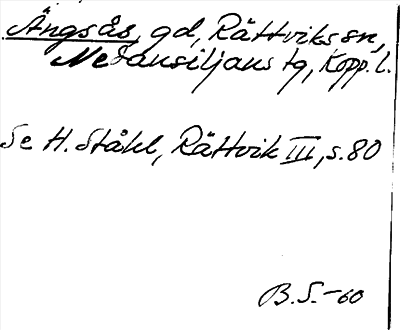 Ängsås, gd, Rättviks sn,
Nedansiljans tg, Kopp. l.
Se H. Ståhl, Rättvik III, s. 80
B. S. -60